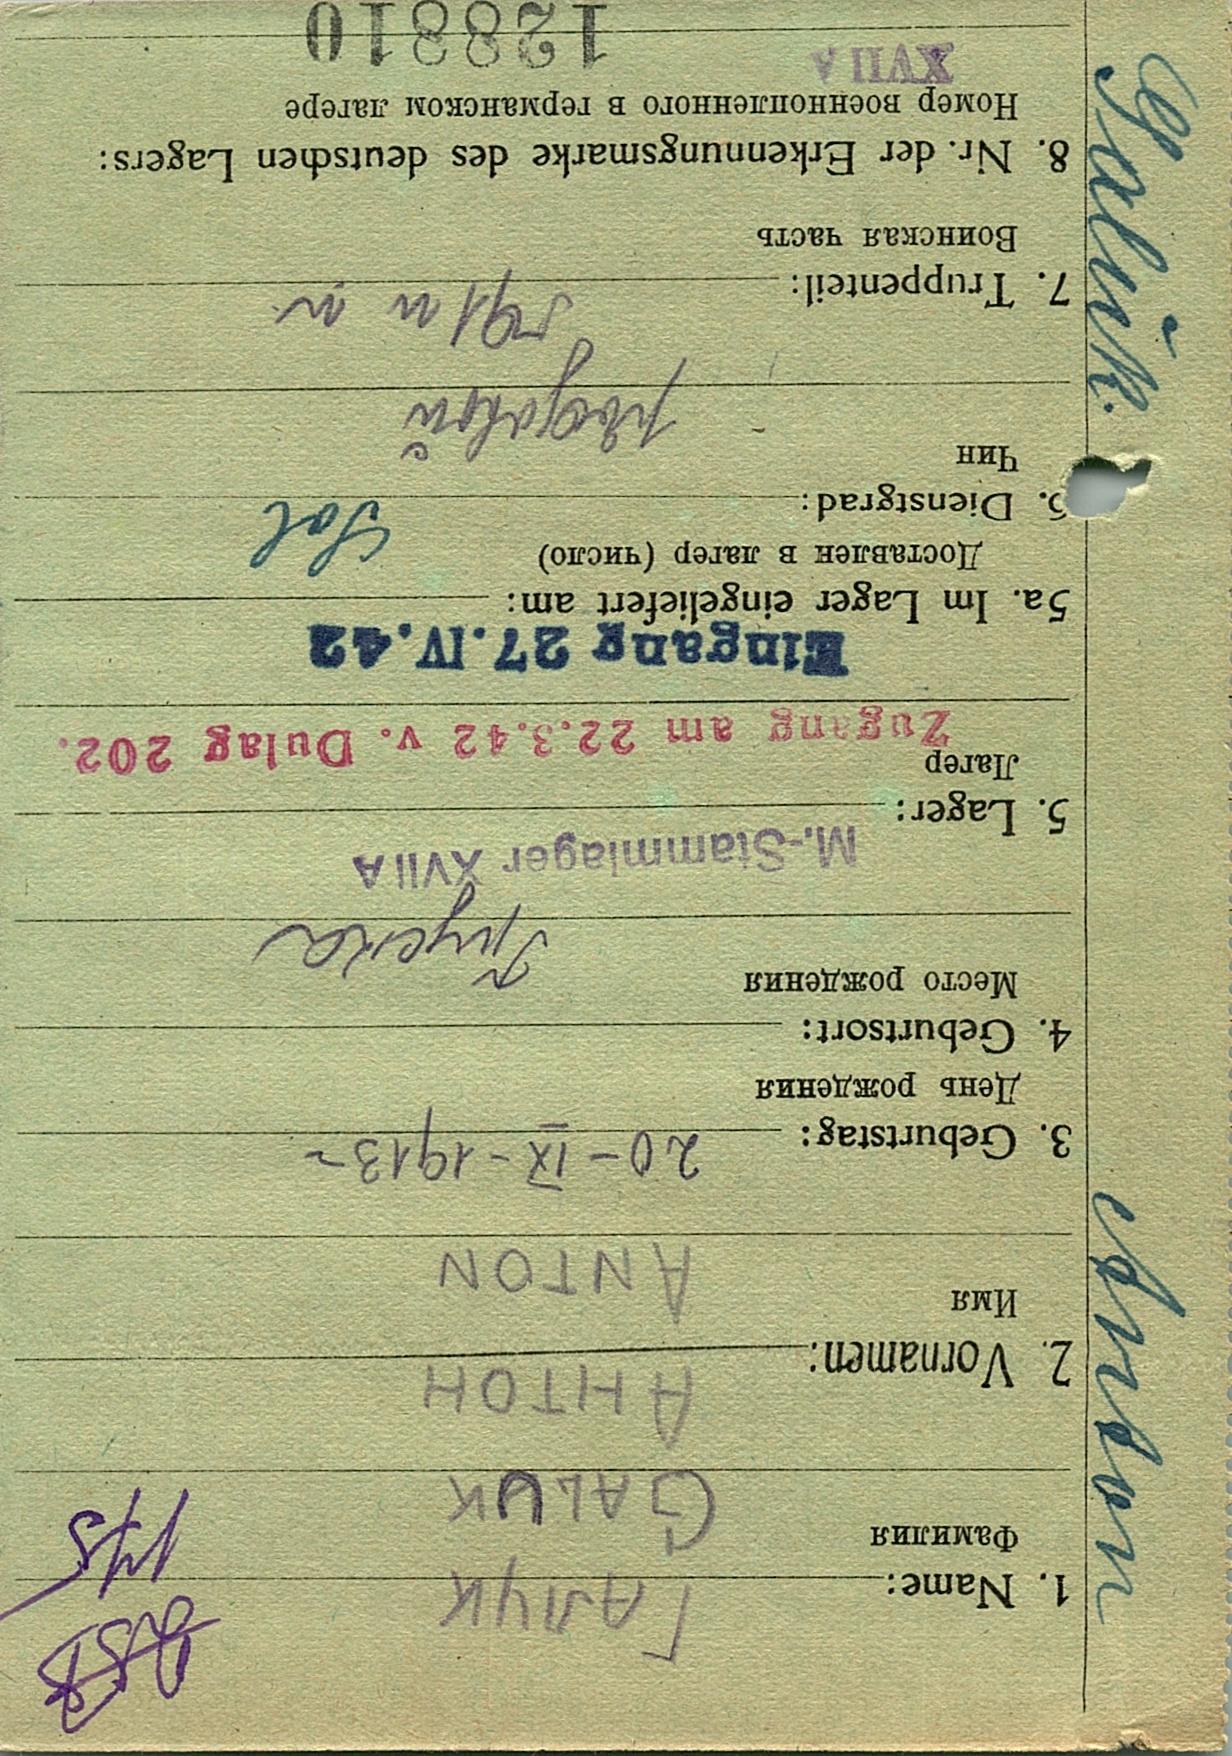 175
1. Name: ГАЛУК
Фамилия
GALUK
2. Vornamen: АНТОН
Имя
ANTON
3. Geburtstag: 20-IX-1913
День рождения
4. Geburtsort:
Место рождения
M.-Stammlager XVII A
5. Lager:
Лагер
Zugang am 22.3.42 v. Dulag 202.
Eingang 27.IV.42
5a. Im Lager eingeliefert am:
Доставлен в лагер (число)
Sol
6. Dienstgrad:
Чин
рядовой
591 п п
7. Truppenteil:
Воинская часть
8. Nr. der Erkennungsmarke des deutschen Lagers:
Номер военнопленного в германском лагере
XVII A 128810
Galuk. Anton